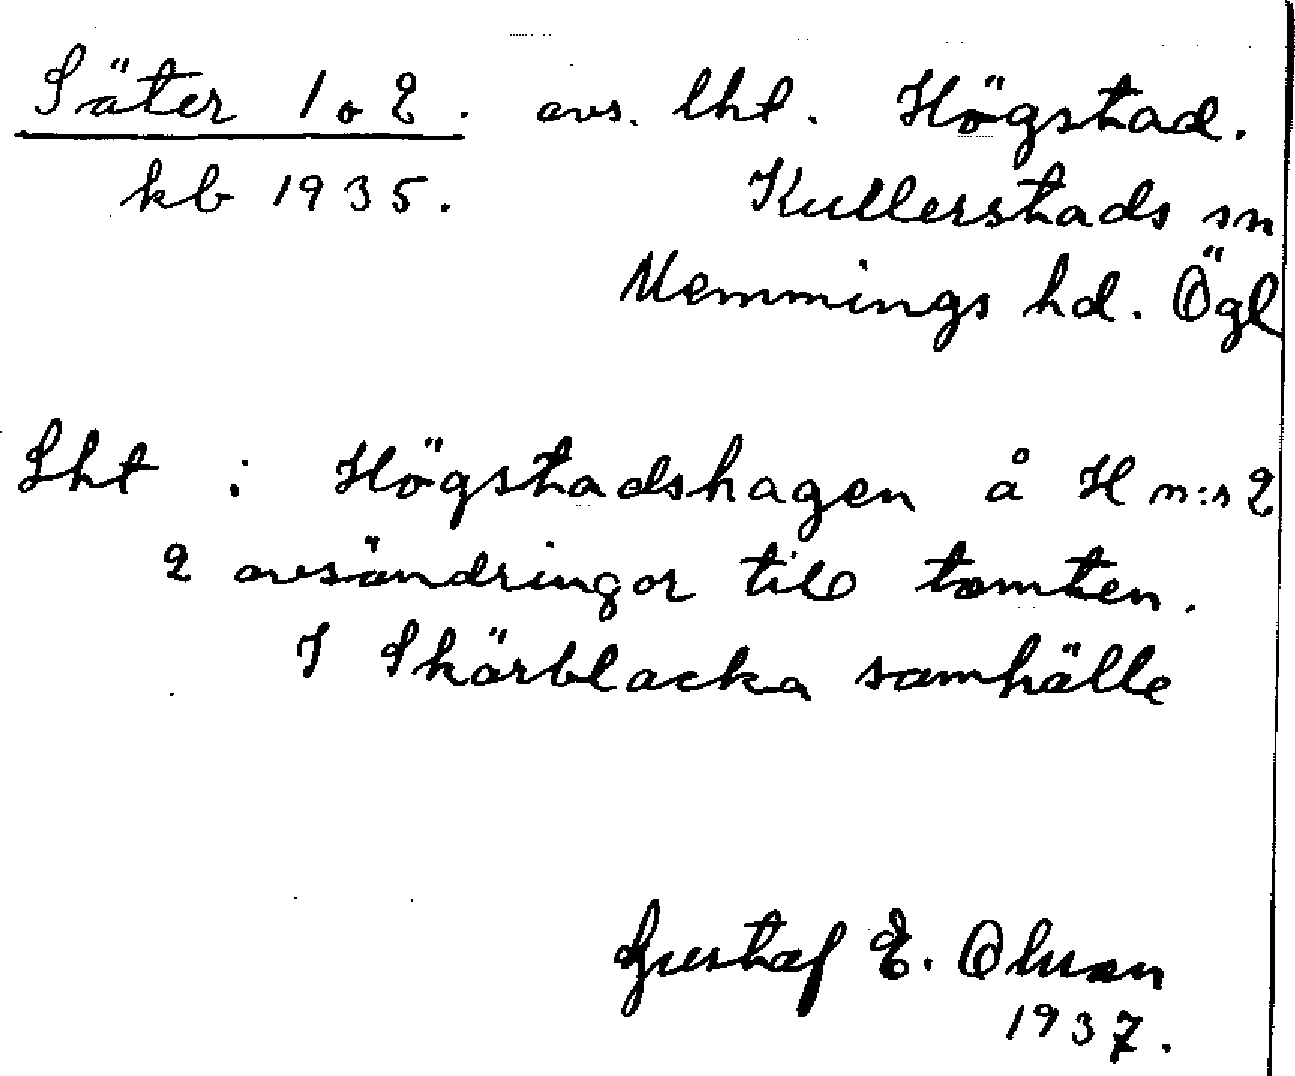 Säter 1 o 2. avs. lht. Högstad.
kb 1935. Kullerstads sn
Memmings hd. Ögl
Lht i Högstadshagen å H n:r 2
2 avsöndringar till tomten.
I Skärblacka samhälle
Gustaf E. Olsson
1937.